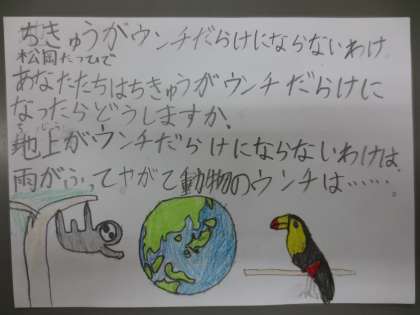 ちきゅうがウンチだらけにならないわけ。
松岡たつひで
あなたたちはちきゅうがウンチだらけに
なったらどうしますか、
地上がウンチだらけにならないわけは、
雨がふってやがて動物のウンチは……。